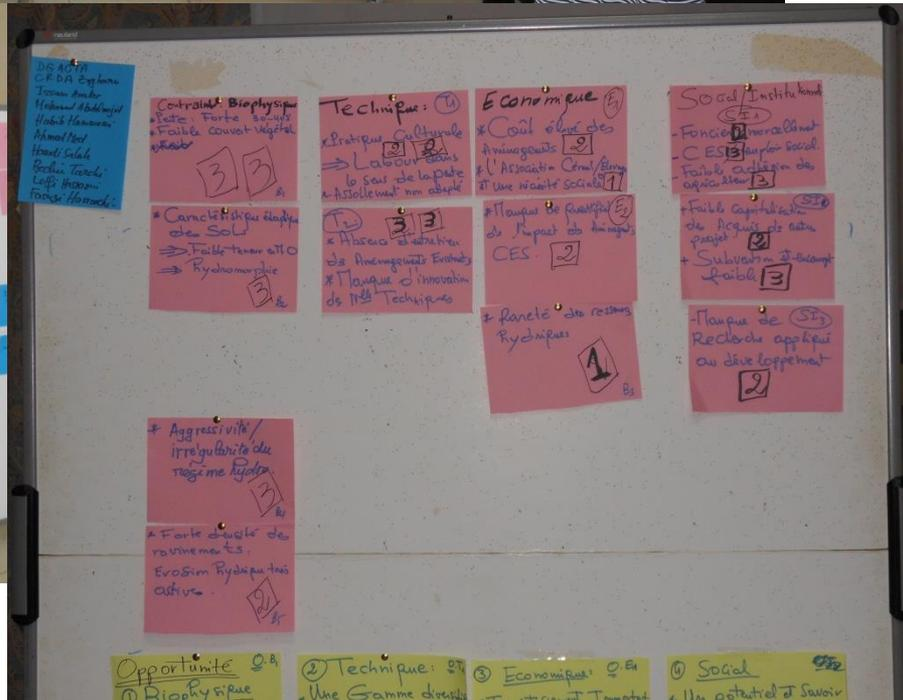 nauland
DGACTA
CRDA Zaghouan
Issam
Mohamed
Habib
Ahmed
Salah
Bechir
Lotfi
Contraint Biophysique
* Pente: Forte 30-40%
* Faible couvert végétal
3 3
B1
* Caractéristique
des Sol
⇒ Faible teneur en MO
⇒ Hydromorphie
3
B2
* Aggressivité/
irrégularité du
régime hydro.
3
B4
* Forte densité des
ravinements.
Erosion Hydrique très
active.
2
B5
Technique: T1
* Pratique Culturale
2 2
⇒ Labour dans
le sens de la pente
- Assolement non adapté
T2 3 3
* Absence d'entretien
des Aménagements Existants
* Manque d'innovation
des Nlles Techniques
Economique E1
* Coût élevé des
Aménagents 2
* L'Association Céréal/Elevage
est une nécessité Sociale 1
* Manque de Quantificat° E2
de l'impact des Aménagts
CES. 2
* Rareté des ressources
hydriques
1
B3
Social/Institutionnel
SI1
- Foncier 2 morcellement
- CES 3 emploi Social.
- Faible adhésion des
agriculteurs 3
+ Faible Capitalisation SI2
des Acquis de
projet 2
+ Subvention et Encouragt
faible 3
- Manque de SI3
Recherche appliqué
au développement
2
Opportunité O.B1
① Biophysique
② Technique: O.T1
- Une Gamme
③ Economique: O.E1
④ Social
* Un potentiel et Savoir